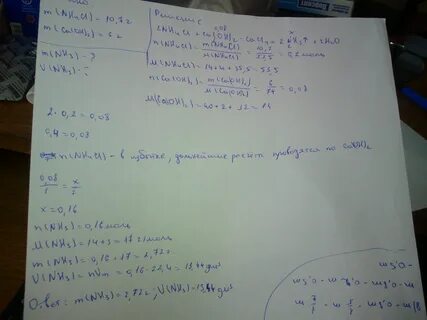 m(NH₄Cl) = 10,7г
m(Ca(OH)₂) = 6г
m(NH₃) - ?
V(NH₃) - ?
Решение
0,08 x
2NH₄Cl + Ca(OH)₂ = CaCl₂ + 2NH₃↑ + 2H₂O
n(NH₄Cl) = m(NH₄Cl) / M(NH₄Cl) = 10,7 / 53,5 = 0,2 моль
M(NH₄Cl) = 14+4+35,5 = 53,5
n(Ca(OH)₂) = m(Ca(OH)₂) / M(Ca(OH)₂) = 6 / 74 = 0,08
M(Ca(OH)₂) = 40+2+32 = 74
2·0,2 = 0,08
0,4 = 0,08
n(NH₄Cl) - в избытке, дальнейшие расчёты проводятся по Ca(OH)₂
0,08 / 1 = x /
x = 0,16
n(NH₃) = 0,16 моль
M(NH₃) = 14+3 = 17 г/моль
m(NH₃) = 0,16·17 = 2,72г
V(NH₃) = nVm = 0,16·22,4 = 13,44 дм³
Ответ: m(NH₃) = 2,72г; V(NH₃) = 13,44 дм³